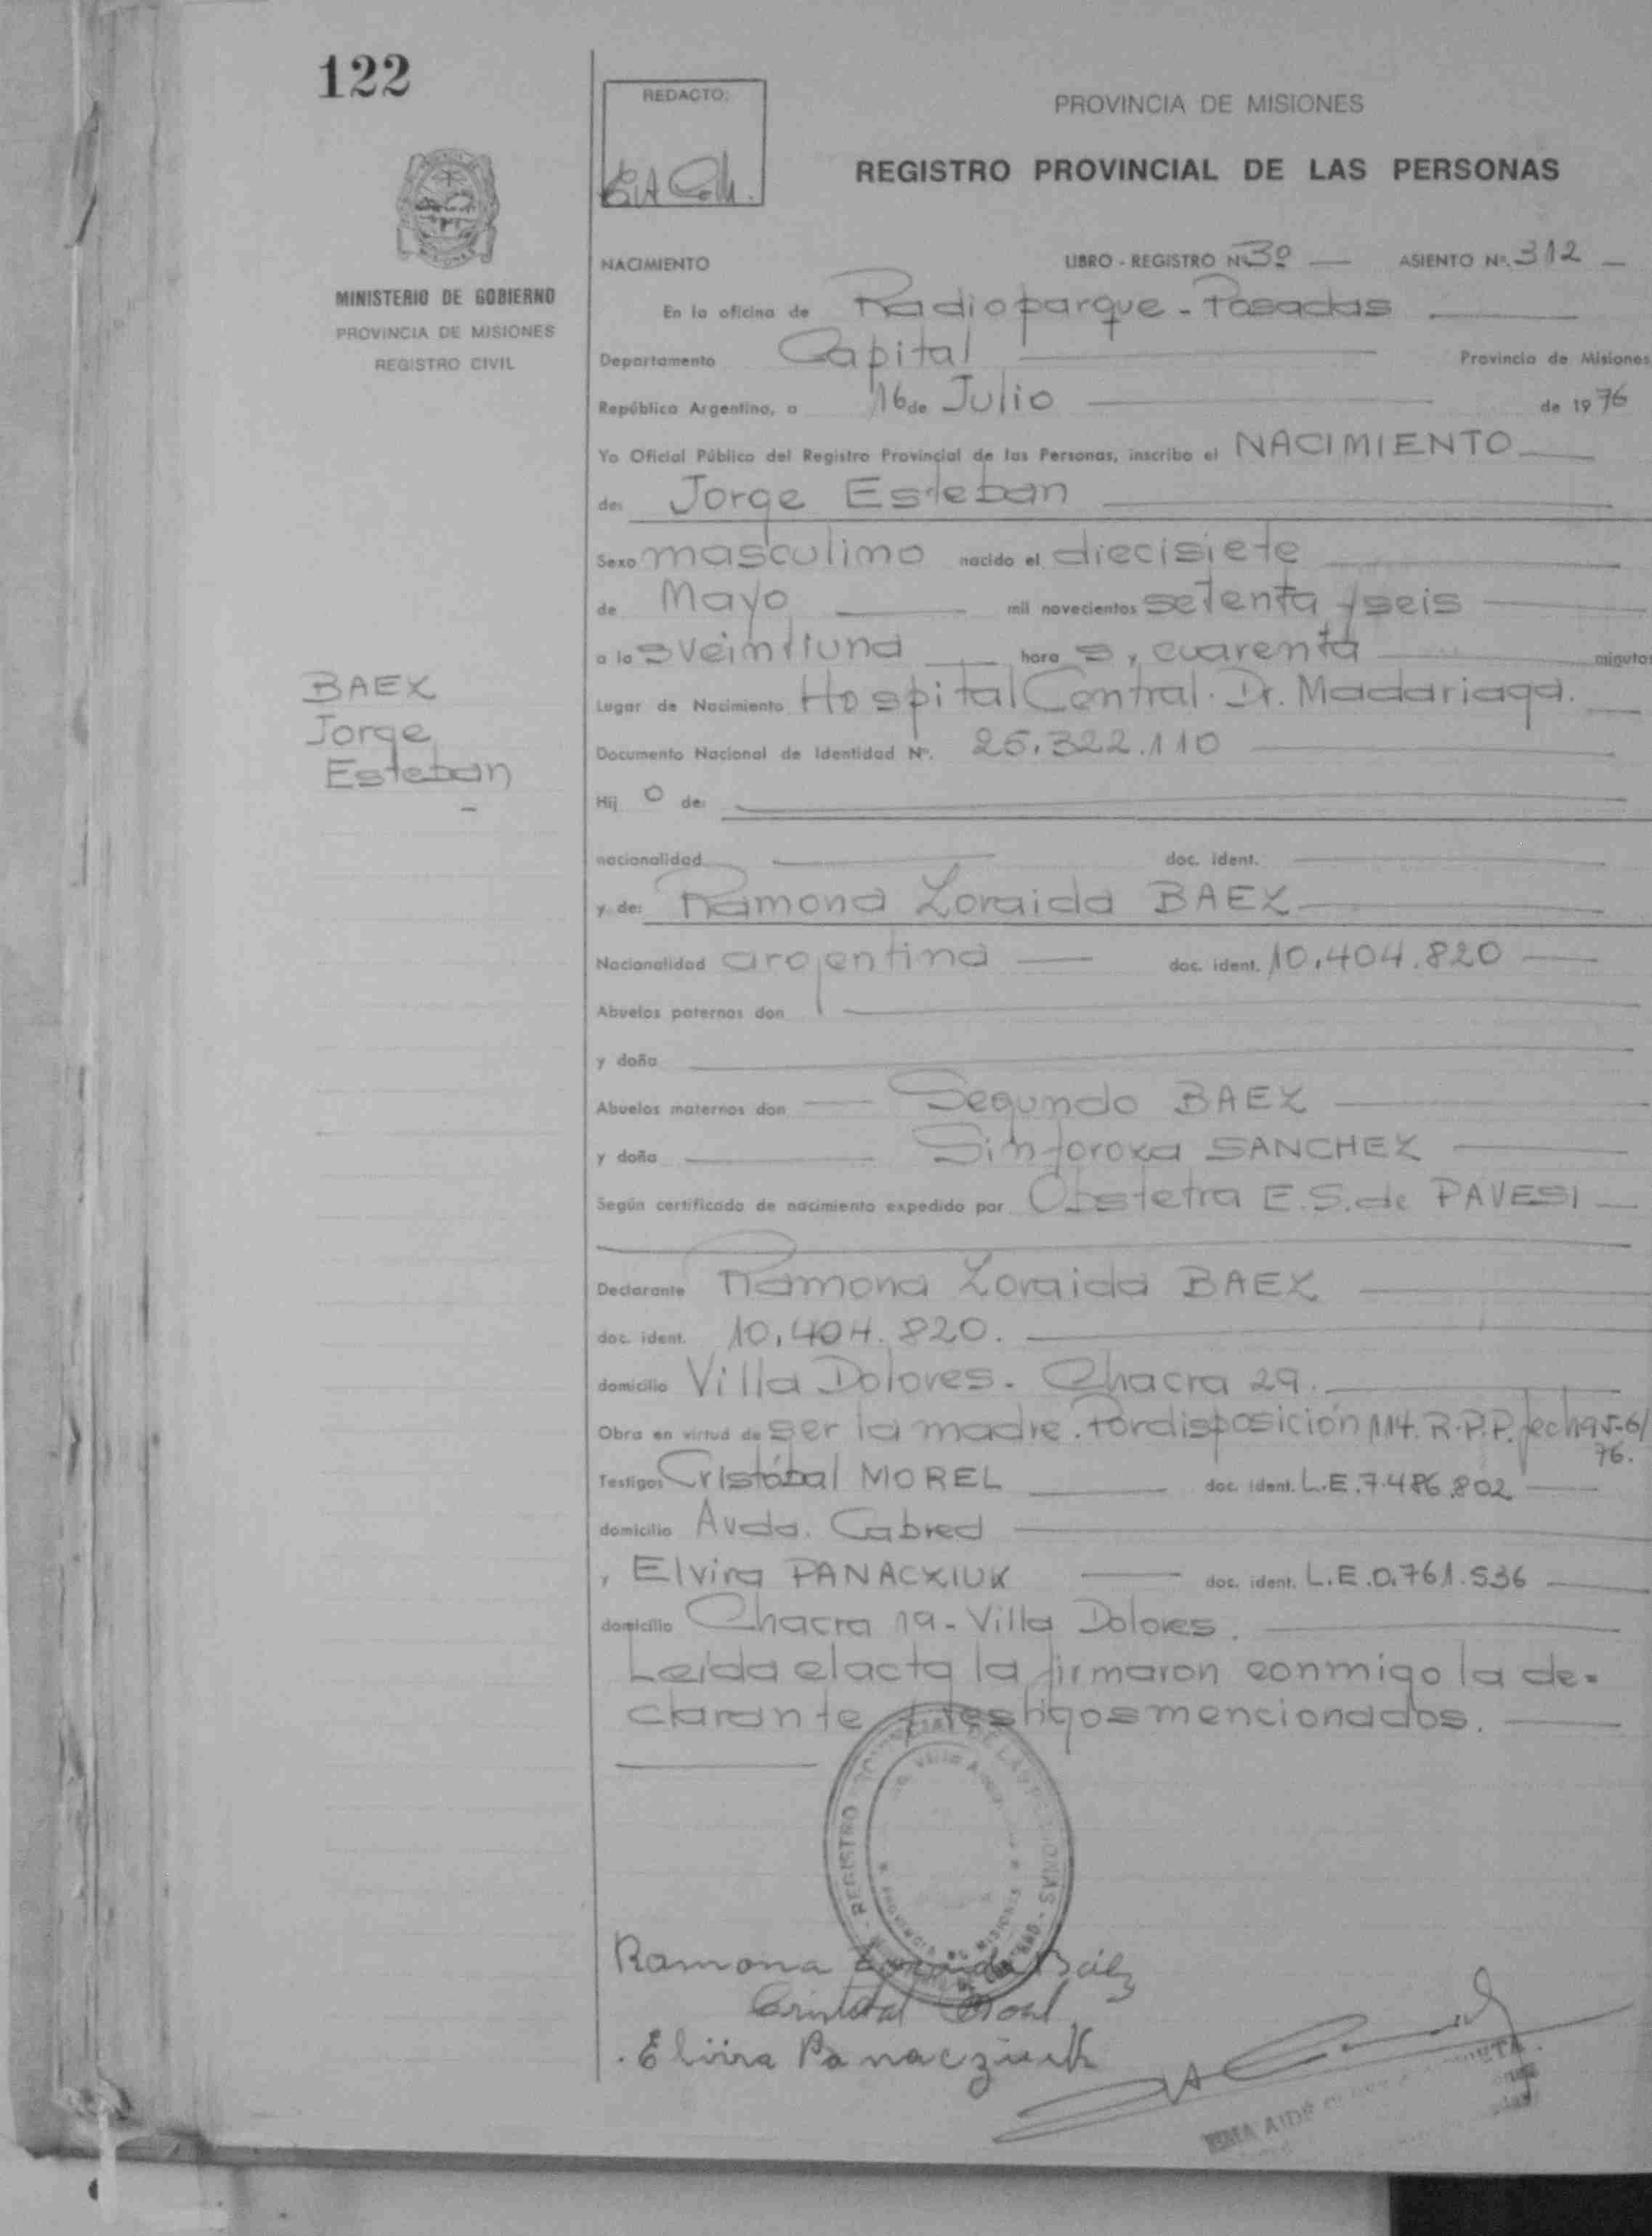 122
REDACTO:
PROVINCIA DE MISIONES
REGISTRO PROVINCIAL DE LAS PERSONAS
MINISTERIO DE GOBIERNO
PROVINCIA DE MISIONES
REGISTRO CIVIL
NACIMIENTO LIBRO - REGISTRO Nº 3º ASIENTO Nº. 312
En la oficina de Radioparque - Posadas
Departamento Capital Provincia de Misiones
República Argentina, a 16 de Julio de 1976
Yo Oficial Público del Registro Provincial de las Personas, inscribo el NACIMIENTO
de: Jorge Esteban
Sexo masculino nacido el diecisiete
de Mayo mil novecientos setenta y seis
a las veintiuna horas y cuarenta minutos
BAEZ
Jorge
Esteban
Lugar de Nacimiento Hospital Central. Dr. Madariaga.
Documento Nacional de Identidad Nº. 25.322.110
Hij o de:
nacionalidad doc. ident.
y de: Ramona Zoraida BAEZ
Nacionalidad argentina doc. ident. 10.404.820
Abuelos paternos don
y doña
Abuelos maternos don Segundo BAEZ
y doña Sinforoza SANCHEZ
Según certificado de nacimiento expedido por Obstetra E.S. de PAVESI
Declarante Ramona Zoraida BAEZ
doc. ident. 10.404.820.
domicilio Villa Dolores. Chacra 29.
Obra en virtud de ser la madre. Por disposición 114. R.P.P. fecha 5-6/
76.
Testigos Cristóbal MOREL doc. ident. L.E.7.486.802
domicilio Avda. Cabred
y Elvira PANACZIUK doc. ident. L.E.0.761.536
domicilio Chacra 19 - Villa Dolores.
Leida el acta la firmaron conmigo la de-
clarante y testigos mencionados.
REGISTRO PROVINCIAL DE LAS PERSONAS
PROVINCIA DE MISIONES
Ramona Zoraida Báez
Cristobal Morel
Elvira Panacziuk